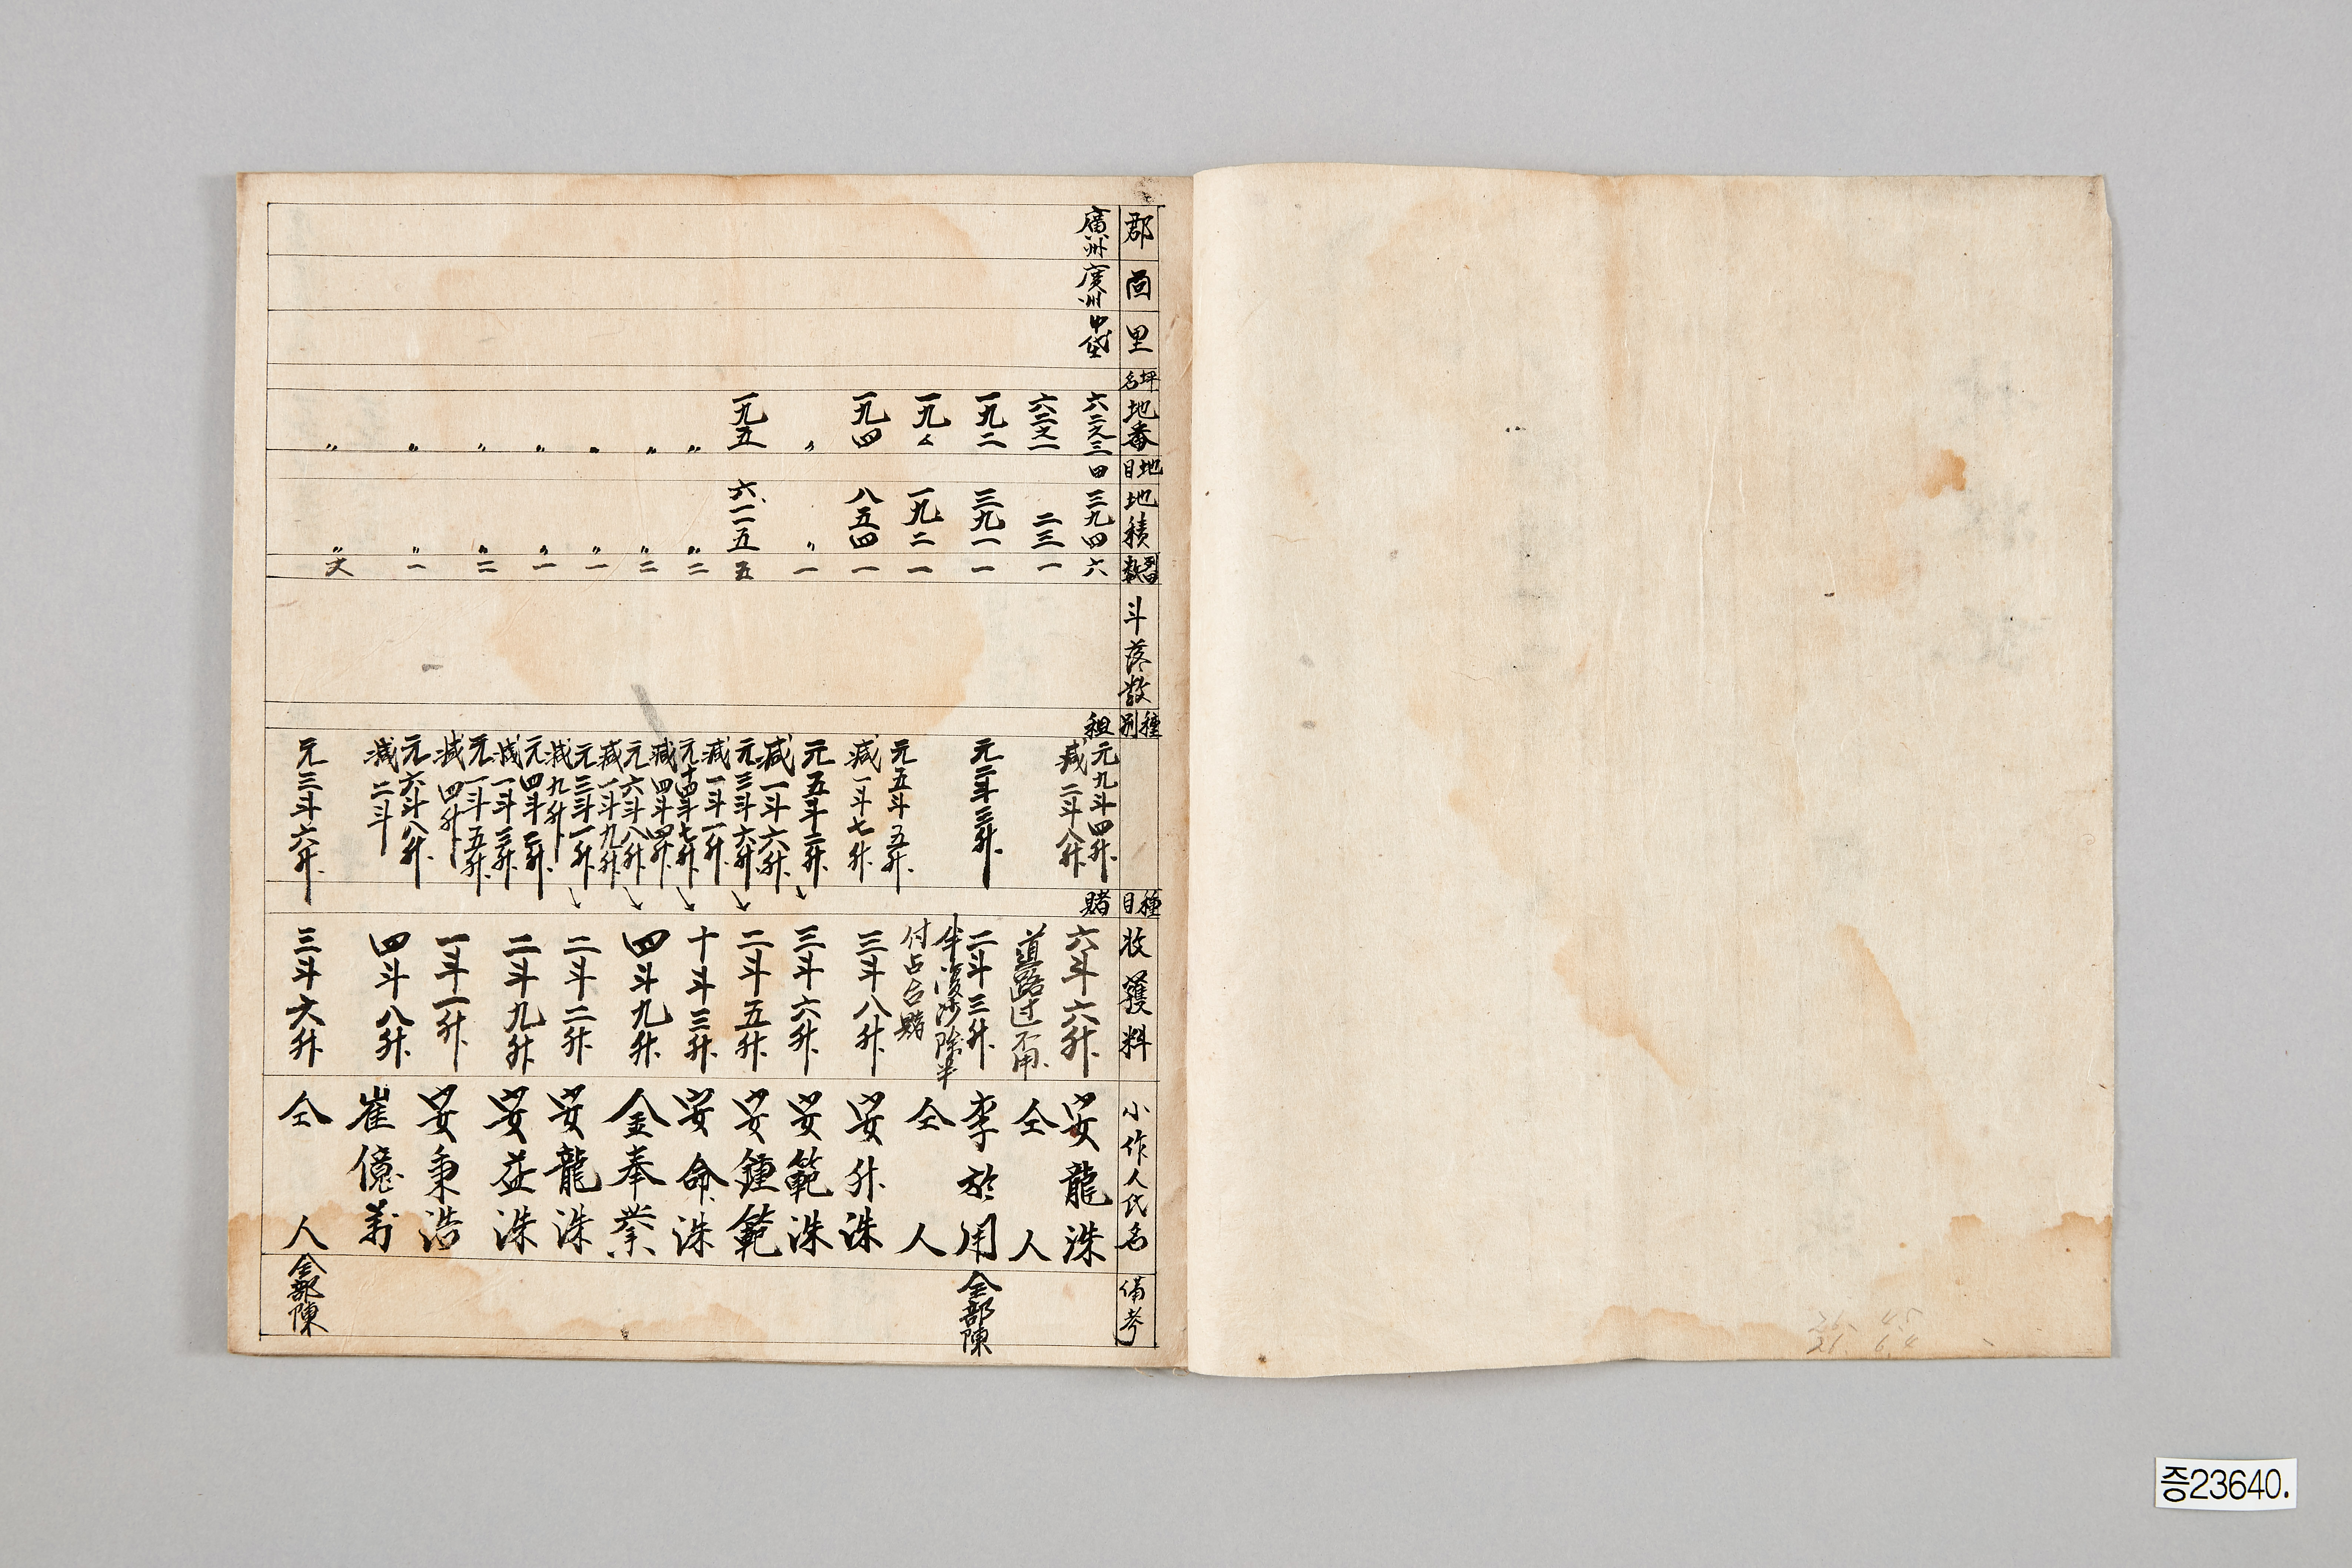 郡 面 里 坪名 地番 地目 地積 斗落數 種別 種目 收穫料 小作人氏名 備考
廣州 廣州 中垈 六二之三 田 三九四 六 租 元九斗四升 減二斗八升 賭 六斗六升 安龍洙
六二之一 二三 一 道路過不用 仝人
一九二 三九一 一 元二斗三升 二斗三升 李於用 全部陳
一九 一九二 一 仝人
一九四 八五四 一 元五斗五升 減一斗七升 三斗八升 安升洙
〃 〃 一 元五斗二升 減一斗六升 三斗六升 安範洙
一九五 六、一一五 五 元三斗六升 減一斗一升 二斗五升 安鍾範
〃 〃 二 元十四斗七升 減四斗四升 十斗三升 安命洙
〃 〃 二 元六斗八升 減一斗九升 四斗九升 金奉
〃 〃 一 元三斗一升 減九升 二斗二升 安龍洙
〃 〃 一 元四斗二升 減一斗三升 二斗九升 安益洙
〃 〃 二 元一斗五升 減四升 一斗一升 安秉浩
〃 〃 一 元六斗八升 減二斗 四斗八升 崔億萬
〃 〃 元三斗六升 三斗六升 仝人 全部陳
26. 45
21. 6.4
증23640.